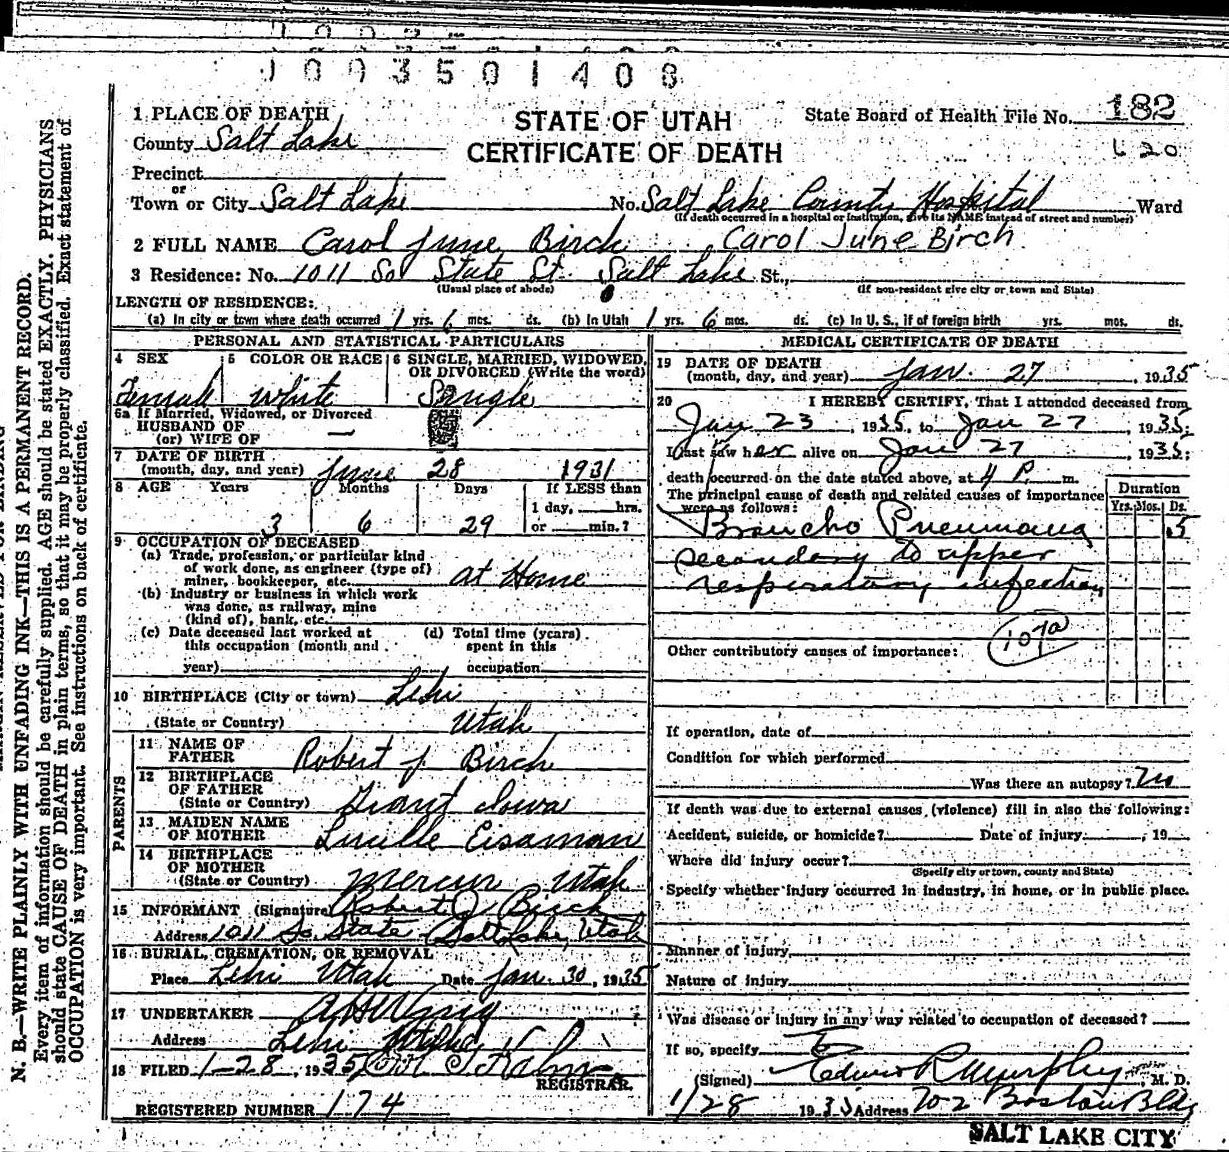 1003501408
1 PLACE OF DEATH
STATE OF UTAH
CERTIFICATE OF DEATH
State Board of Health File No. 182
620
County Salt Lake
Precinct
or
Town or City Salt Lake No. Salt Lake County Hospital Ward
(If death occurred in a hospital or institution, give its NAME instead of street and number)
2 FULL NAME Carol June Birch , Carol June Birch
3 Residence: No. 1011 So State St Salt Lake St.,
(Usual place of abode) (If non-resident give city or town and State)
LENGTH OF RESIDENCE:
(a) In city or town where death occurred 1 yrs. 6 mos. ds. (b) In Utah 1 yrs. 6 mos. ds. (c) In U. S., if of foreign birth yrs. mos. ds.
PERSONAL AND STATISTICAL PARTICULARS
4 SEX
Female
5 COLOR OR RACE
white
6 SINGLE, MARRIED, WIDOWED,
OR DIVORCED (Write the word)
Single
6a If Married, Widowed, or Divorced
HUSBAND OF
(or) WIFE OF —
7 DATE OF BIRTH
(month, day, and year) June 28 1931
8 AGE Years Months Days If LESS than
1 day, hrs.
or min.?
3 6 29
9 OCCUPATION OF DECEASED
(a) Trade, profession, or particular kind
of work done, as engineer (type of)
miner, bookkeeper, etc. at Home
(b) Industry or business in which work
was done, as railway, mine
(kind of), bank, etc.
(c) Date deceased last worked at
this occupation (month and
year)
(d) Total time (years)
spent in this
occupation
10 BIRTHPLACE (City or town) Lehi
(State or Country) Utah
PARENTS
11 NAME OF
FATHER Robert J. Birch
12 BIRTHPLACE
OF FATHER
(State or Country) Iowa
13 MAIDEN NAME
OF MOTHER Lucille Eisaman
14 BIRTHPLACE
OF MOTHER
(State or Country) Mercur Utah
15 INFORMANT (Signature Robert J. Birch
Address 1011 So. State Salt Lake, Utah
16 BURIAL, CREMATION, OR REMOVAL
Place Lehi Utah Date Jan. 30, 1935
17 UNDERTAKER
Address Lehi Utah
18 FILED 1-28, 1935
REGISTRAR.
REGISTERED NUMBER 174
MEDICAL CERTIFICATE OF DEATH
19 DATE OF DEATH
(month, day, and year) Jan. 27, 1935
20 I HEREBY CERTIFY, That I attended deceased from
Jan 23, 1935, to Jan 27, 1935;
I last saw her alive on Jan 27, 1935;
death occurred on the date stated above, at 4 P. m.
The principal cause of death and related causes of importance
were as follows:
Duration
Yrs. Mos. Ds.
Broncho Pneumonia 5
secondary to upper
respiratory infection
107a
Other contributory causes of importance:
If operation, date of
Condition for which performed
Was there an autopsy? no
If death was due to external causes (violence) fill in also the following:
Accident, suicide, or homicide? Date of injury , 19
Where did injury occur?
(Specify city or town, county and State)
Specify whether injury occurred in industry, in home, or in public place.
Manner of injury
Nature of injury
Was disease or injury in any way related to occupation of deceased?
If so, specify
(Signed) Edwin R Murphy, M. D.
1/28 1935 Address 702 Boston Bldg
SALT LAKE CITY
N. B.—WRITE PLAINLY WITH UNFADING INK—THIS IS A PERMANENT RECORD.
Every item of information should be carefully supplied. AGE should be stated EXACTLY. PHYSICIANS
should state CAUSE OF DEATH in plain terms, so that it may be properly classified. Exact statement of
OCCUPATION is very important. See instructions on back of certificate.